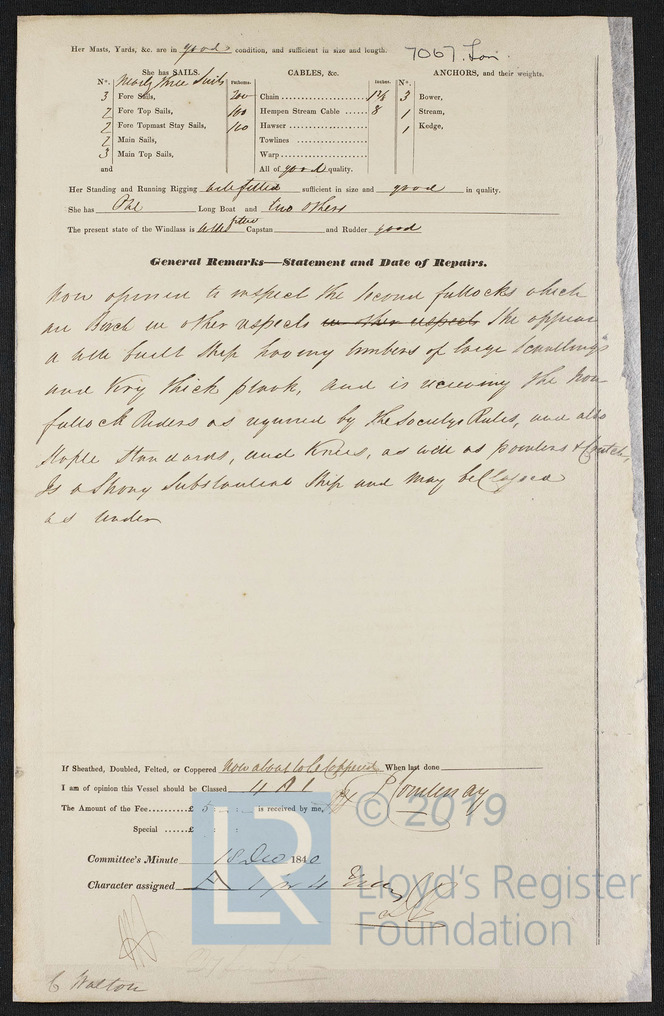 Her Masts, Yards, &c. are in good condition, and sufficient in size and length.
7067 Lon.
She has SAILS.
CABLES, &c.
ANCHORS, and their weights.
N°. Nearly three Suits Fathoms.
Inches.
N°.
3 Fore Sails, 200 Chain 1 3 Bower,
2 Fore Top Sails, 100 Hempen Stream Cable 8 1 Stream,
2 Fore Topmast Stay Sails, 120 Hawser 1 Kedge,
2 Main Sails, Towlines
3 Main Top Sails, Warp
and All of good quality.
Her Standing and Running Rigging well fitted sufficient in size and good in quality.
She has One Long Boat and two others
The present state of the Windlass is well fitted Capstan and Rudder good
General Remarks—Statement and Date of Repairs.
Now opened to inspect the Second futtocks which
are Birch in other respects in other respects She appears
a well built Ship having timbers of large Scantlings
and Very thick plank, and is receiving the Iron
futtock Riders as required by the Societys Rules, and also
Staple Standards, and Knees, as well as pointers & Crutch,
Is a Strong Substantial Ship and may be Classed
as under
If Sheathed, Doubled, Felted, or Coppered Now about to be Coppered When last done
I am of opinion this Vessel should be Classed 4 A 1
The Amount of the Fee £ 5 : : is received by me,
Special £ : :
Committee's Minute 18 Dec 1840
Character assigned A 1 for 4 Years
C Walton
© 2019
LR
Lloyd's Register
Foundation